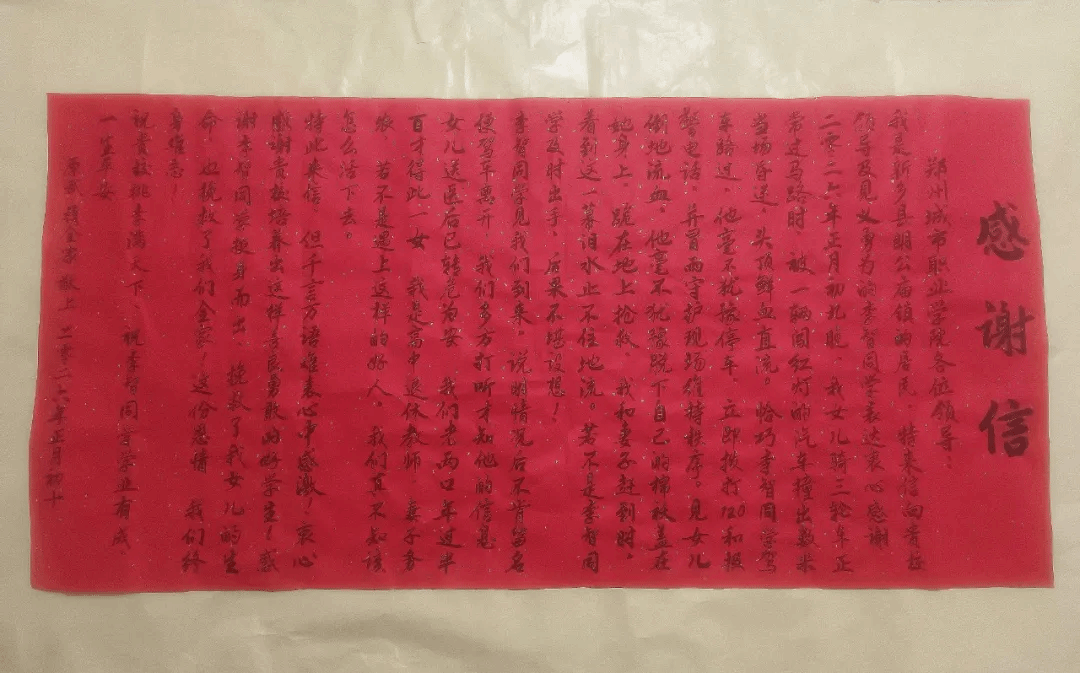 感谢信
郑州城市职业学院各位领导：
我是新乡县朗公庙镇的居民，特来信向贵校
领导及见义勇为的李智同学表达衷心感谢
二零二六年正月初九晚，我女儿骑三轮车正
常过马路时，被一辆闯红灯的汽车撞出数米
当场昏迷，头顶鲜血直流。恰巧李智同学驾
车路过，他毫不犹豫停车，立即拨打120和报
警电话，并冒雨守护现场维持秩序。见女儿
不断地流血，他毫不犹豫脱下自己的棉袄盖在
她身上，跪在地上抢救，我和妻子赶到时，
看到这一幕泪水止不住地流。若不是李智同
学及时出手，后果不堪设想！
李智同学见我们到来，说明情况后不肯留名
便驾车离开，我们多方打听才知他的信息
女儿送医后已转危为安 我们老两口年过半
百才得此一女 我是高中退休教师，妻子务
农，若不是遇上这样的好人，我们真不知该
怎么活下去。
特此来信，但千言万语难表心中感激！衷心
感谢贵校培养出这样善良勇敢的好学生！感
谢李智同学挺身而出，挽救了我女儿的生
命，也挽救了我们全家！这份恩情 我们终
身难忘！
祝贵校桃李满天下、祝李智同学学业有成、
一生平安
全家敬上 二零二六年正月初十